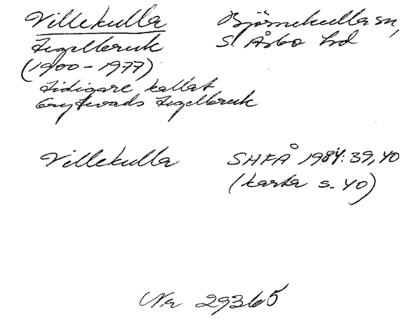 Villekulla Björnekulla sn,
Tegelbruk S. Åsbo hd
(1900-1977)
Tidigare kallat
Gryttevads Tegelbruk
Villekulla SHFÅ 1984:39,40
(karta s. 40)
Nr 29365